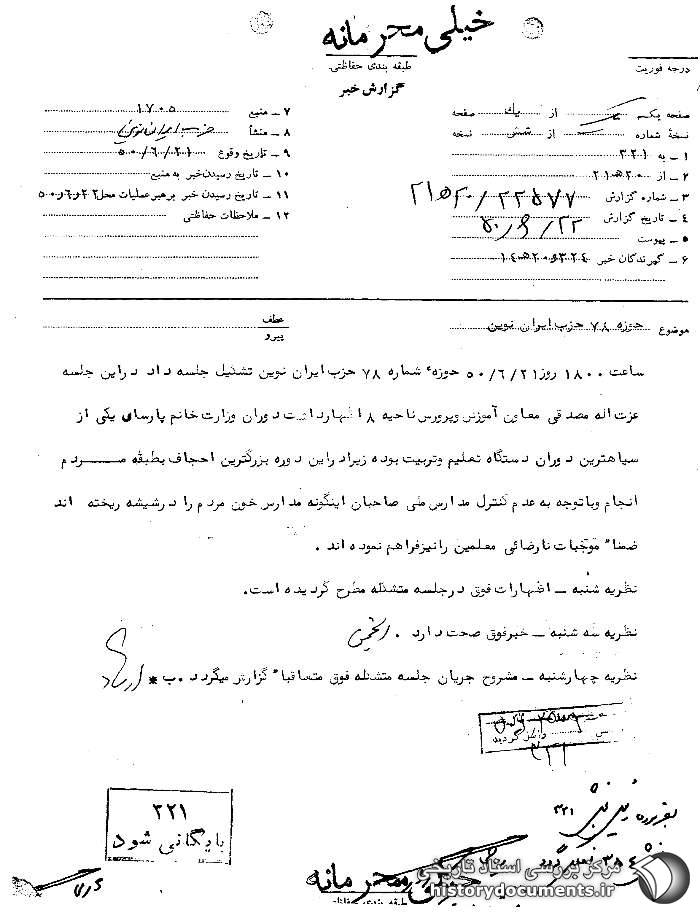 خیلی محرمانه
طبقه بندی حفاظتی
گزارش خبر
درجه فوریت
صفحه یک از یک صفحه
نسخهٔ شماره از شش نسخه
۱ ـ به ۳۲۱
۲ ـ از ۲۱ه۲۰
۳ ـ شماره گزارش ۲۱ه۲۰/۲۲۵۷۷
۴ ـ تاریخ گزارش ۵۰/۶/۲۲
۵ ـ پیوست
۶ ـ گیرندگان خبر
۷ ـ منبع ۱۷۰۵
۸ ـ منشأ حزب ایران نوین
۹ ـ تاریخ وقوع ۵۰/۶/۲۱
۱۰ ـ تاریخ رسیدن خبر به منبع
۱۱ ـ تاریخ رسیدن خبر برهبر عملیات محل ۵۰٫۶٫۲۲
۱۲ ـ ملاحظات حفاظتی
موضوع حوزه ۷۸ حزب ایران نوین
عطف
پیرو
ساعت ۱۸۰۰ روز ۵۰/۶/۲۱ حوزهٔ شماره ۷۸ حزب ایران نوین تشکیل جلسه داد دراین جلسه
عزت اله مصدقی معاون آموزش وپرورش ناحیه ۸ اظهارداشت دوران وزارت خانم پارسای یکی از
سیاهترین دوران دستگاه تعلیم وتربیت بوده زیرادراین دوره بزرگترین اجحاف بطبقه مـــردم
انجام وباتوجه به عدم کنترل مدارس ملی صاحبان اینگونه مدارس خون مردم را درشیشه ریخته اند
ضمناً موجبات نارضائی معلمین رانیزفراهم نموده اند .
نظریه شنبه ــ اظهارات فوق درجلسه متشکله مطرح گردیده است.
نظریه سه شنبه ــ خبرفوق صحت دارد .
نظریه چهارشنبه ــ مشروح جریان جلسه متشکله فوق متعاقباً گزارش میگردد .ب *
۳۲۱
بایگانی شود
۳۲۱
خیلی محرمانه
طبقه بندی حفاظتی
مرکز بررسی اسناد تاریخی
historydocuments.ir